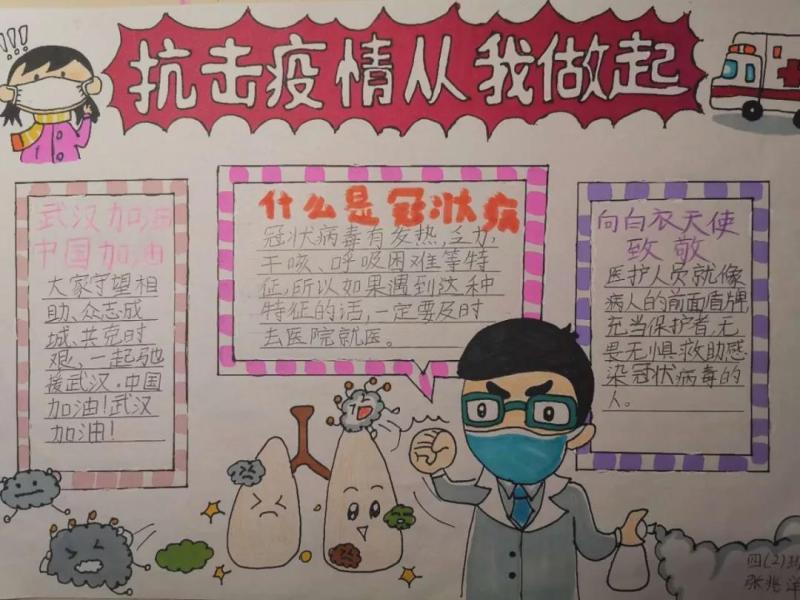 !!!
抗击疫情从我做起
武汉加油
中国加油
大家守望相
助、众志成
城、共克时
艰，一起驰
援武汉·中国
加油！武汉
加油！
什么是冠状病
冠状病毒有发热,乏力,
干咳、呼吸困难等特
征,所以如果遇到达种
特征的话,一定要及时
去医院就医。
向白衣天使
致敬
医护人员就像
病人的前面盾牌,
充当保护者,无
畏无惧救助感
染冠状病毒的
人。
四(2)班
张兆洋